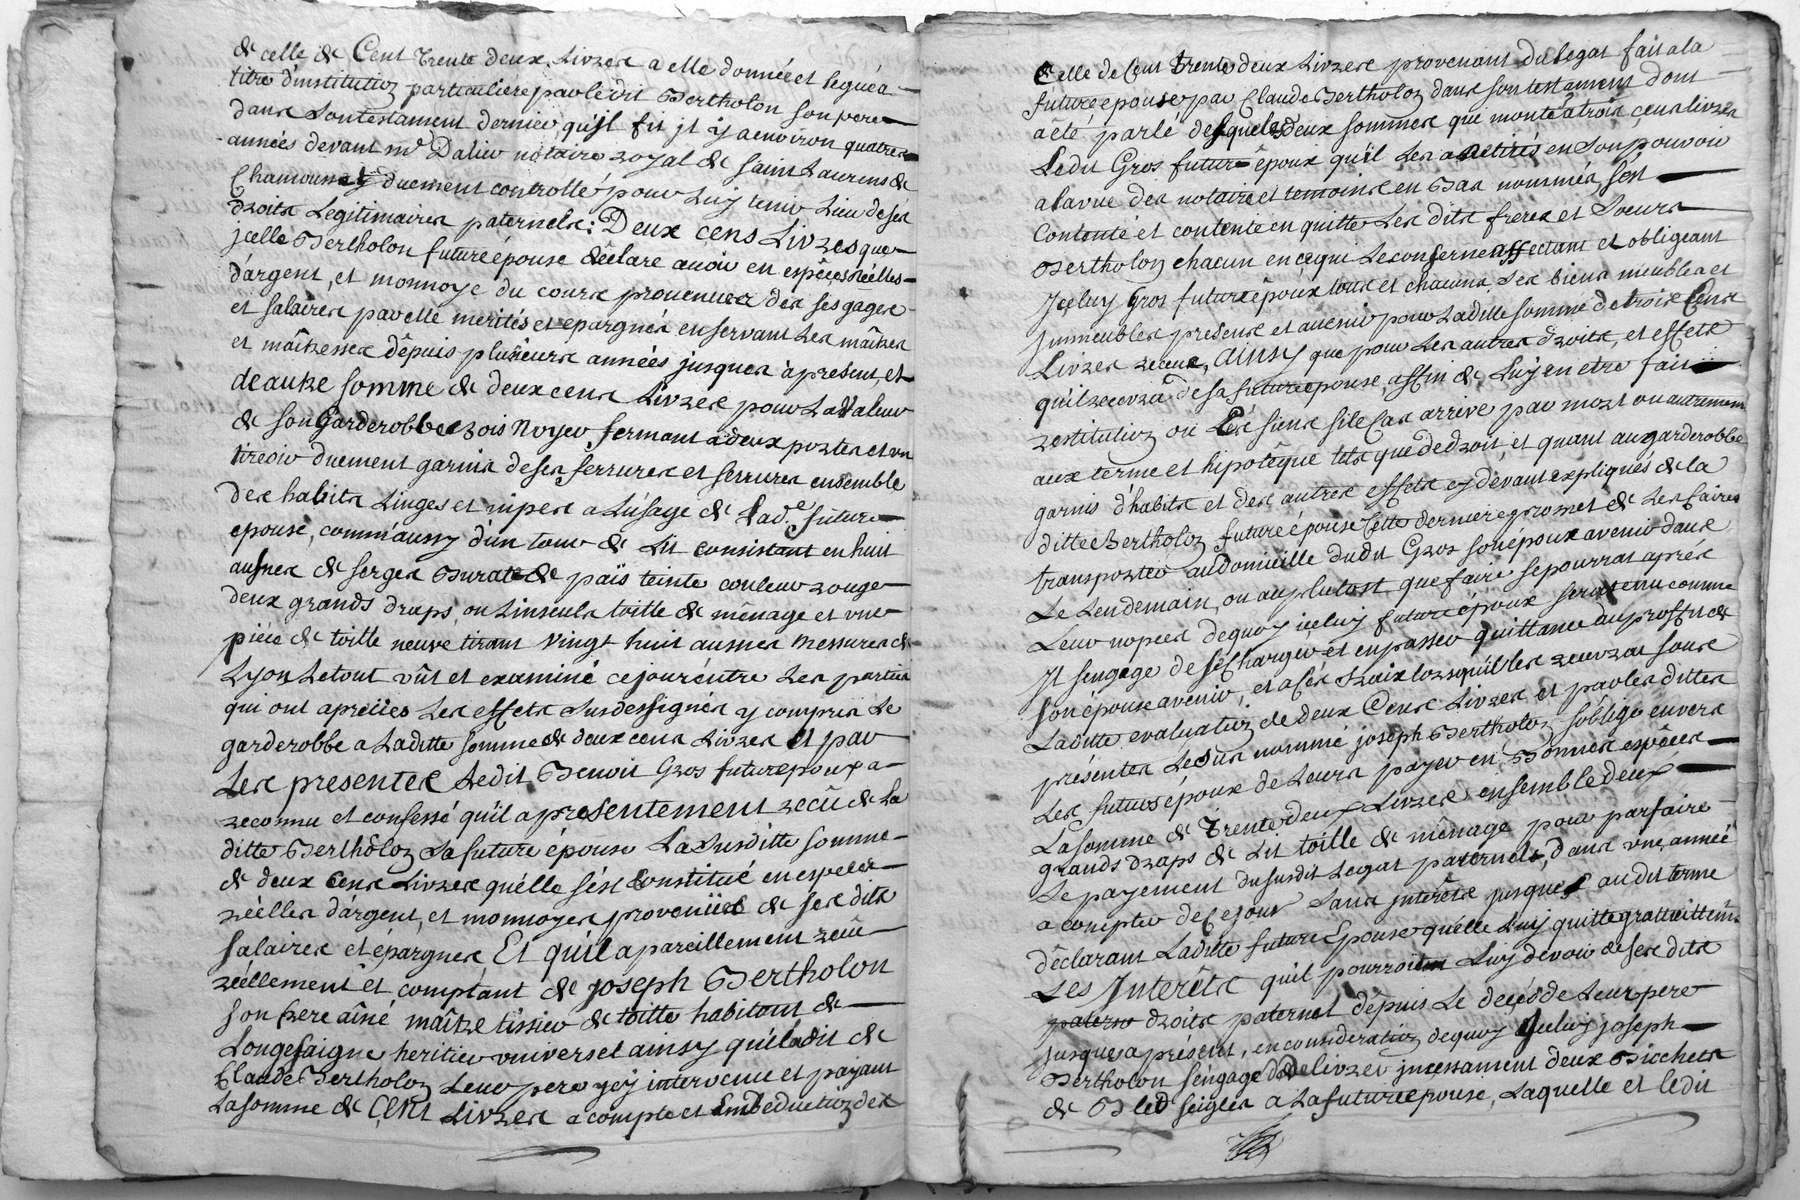 & celle de Cent trente deux Livres a elle donnée et leguéa
titre d'institution particuliere par ledit Bertholon son pere
dans Son testament dernier qu'il fit jl y a environ quatre
années devant mr Dalier notaire royal de Saint Laurens de
Chamousset duement controllé pour luy tenir Lieu de ses
droits Legitimaires paternels: Deux cens Livres que
jcelle Bertholon future épouse déclare avoir en espéces réelles
d'argent, et monnoye du cours provenues des ses gages
et salaires par elle merités et epargnés en servant Les maîtres
et maîtresses dépuis plusieurs années jusques à present, et
de autre somme de deux cens Livres pour La Valeur
de son Garderobbe bois Noyer fermant à deux portes et un
tireoir duement garnis de ses ferrures et serrures ensemble
des habits Linges et nipes a L'usage de Lade future
epouse, comm'aussy d'un tour de Lit consistant en huit
ausnes de serges de païs teinte couleur rouge
deux grands draps, ou Linseuls toille de ménage et une
piéce de toille neuve tirant Vingt huit ausnes Messures de
Lyon Le tout vût et examiné cejour entre Les parties
qui ont apreties Les effets Susdessignés y compris Le
garderobbe a Laditte somme de deux cens Livres Et par
Les presentes Ledit Benoit Gros futur époux a
reconnu et confessé qu'il a presentement recû de La
ditte Bertholon Sa future épouse La Susditte somme
de deux cens Livres qu'elle s'est Constitué en espéces
réelles d'argent, et monnoyes provenües de ses dits
Salaires et épargnes Et qu'il a pareillement recû
réellement et comptant de joseph Bertholon
son frere aîné maître tissier de toille habitant de
Longesaigne heritier universel ainsy qu'il a dit de
Claude Bertholon Leur pere jcy intervenu et payant
La somme de Cent Livres a compte et En deduction des
Celle de Cent trente deux Livres provenant du legat fait a la
future épouse par Claude Bertholon dans son testament dont
a été parlé desquelles deux sommes qui monte à trois cens livres
Ledit Gros futur époux qu'il Les a Retirés en Son pouvoir
a la vue des notaire et temoins en Bas nommés s'est
Contenté et contente en quitte Les dits freres et Soeurs
Bertholon chacun en ce qui Le conserne affectant et obligeant
Jceluy Gros futur époux tous et chacuns Ses biens meubles et
Jmmeubles presens et avenir pour Laditte somme de trois Cens
Livres receue, ainsy que pour Les autres droits, et effets
qu'il recevra de sa future epouse, affin de Luy en etre fait
restitution ou és siens si le Cas arrive par mort ou autrement
aux terme et hipotêque tels que de droit, et quant au garderobbe
garnis d'habits et des autres effets cy devant expliqués de la
ditte Bertholon future épouse Cette derniere promet de Les faires
transporter au domicille dudit Gros son époux avenir dans
Le Lendemain, ou au plutost que faire se pourrat après
Leur nopces dequoy iceluy futur époux serat tenu comme
Jl s'engage de se Charger et en passer quittance au proffit de
son épouse avenir, et a ses fraix lorsqu'il les recevrat sous
Laditte evaluation de deux Cens Livres et par les dittes
présentes Le Sus nommé joseph Bertholon s'oblige envers
Les futurs époux de Leurs payer en Bonnes espéces
La somme de Trente deux Livres ensemble deux
grands draps de Lit toille de ménage pour parfaire
Le payement du susdit Legat paternels, dans une année
a compter de Ce jour sans jntérêts jusques au dit terme
déclarant Laditte future Epouse qu'elle Luy quitte grattuittemt.
Les Jnterêts qu'il pourroit Luy devoir de ses dits
droits paternel dépuis Le deces de Leur pere
jusques a présent, en consideration dequoy Jceluy joseph
Bertholon s'engage de délivrer jncessament deux Bicchets
de Bled seigles a La future épouse, Laquelle et ledit